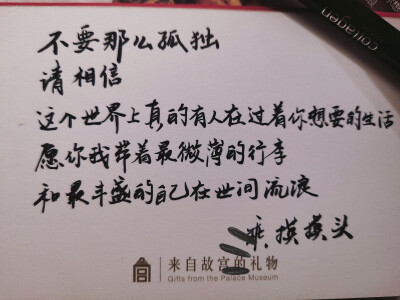 不要那么孤独
请相信
这个世界上真的有人在过着你想要的生活
愿你我带着最微薄的行李
和最丰盛的自己在世间流浪
乖,摸摸头
来自故宫的礼物
Gifts from the Palace Museum
collagen